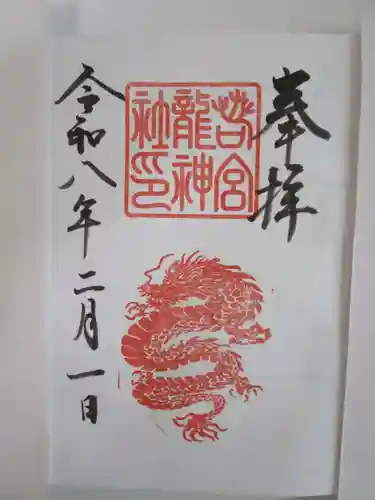 奉拝
若宮
龍神
社印
令和八年二月一日